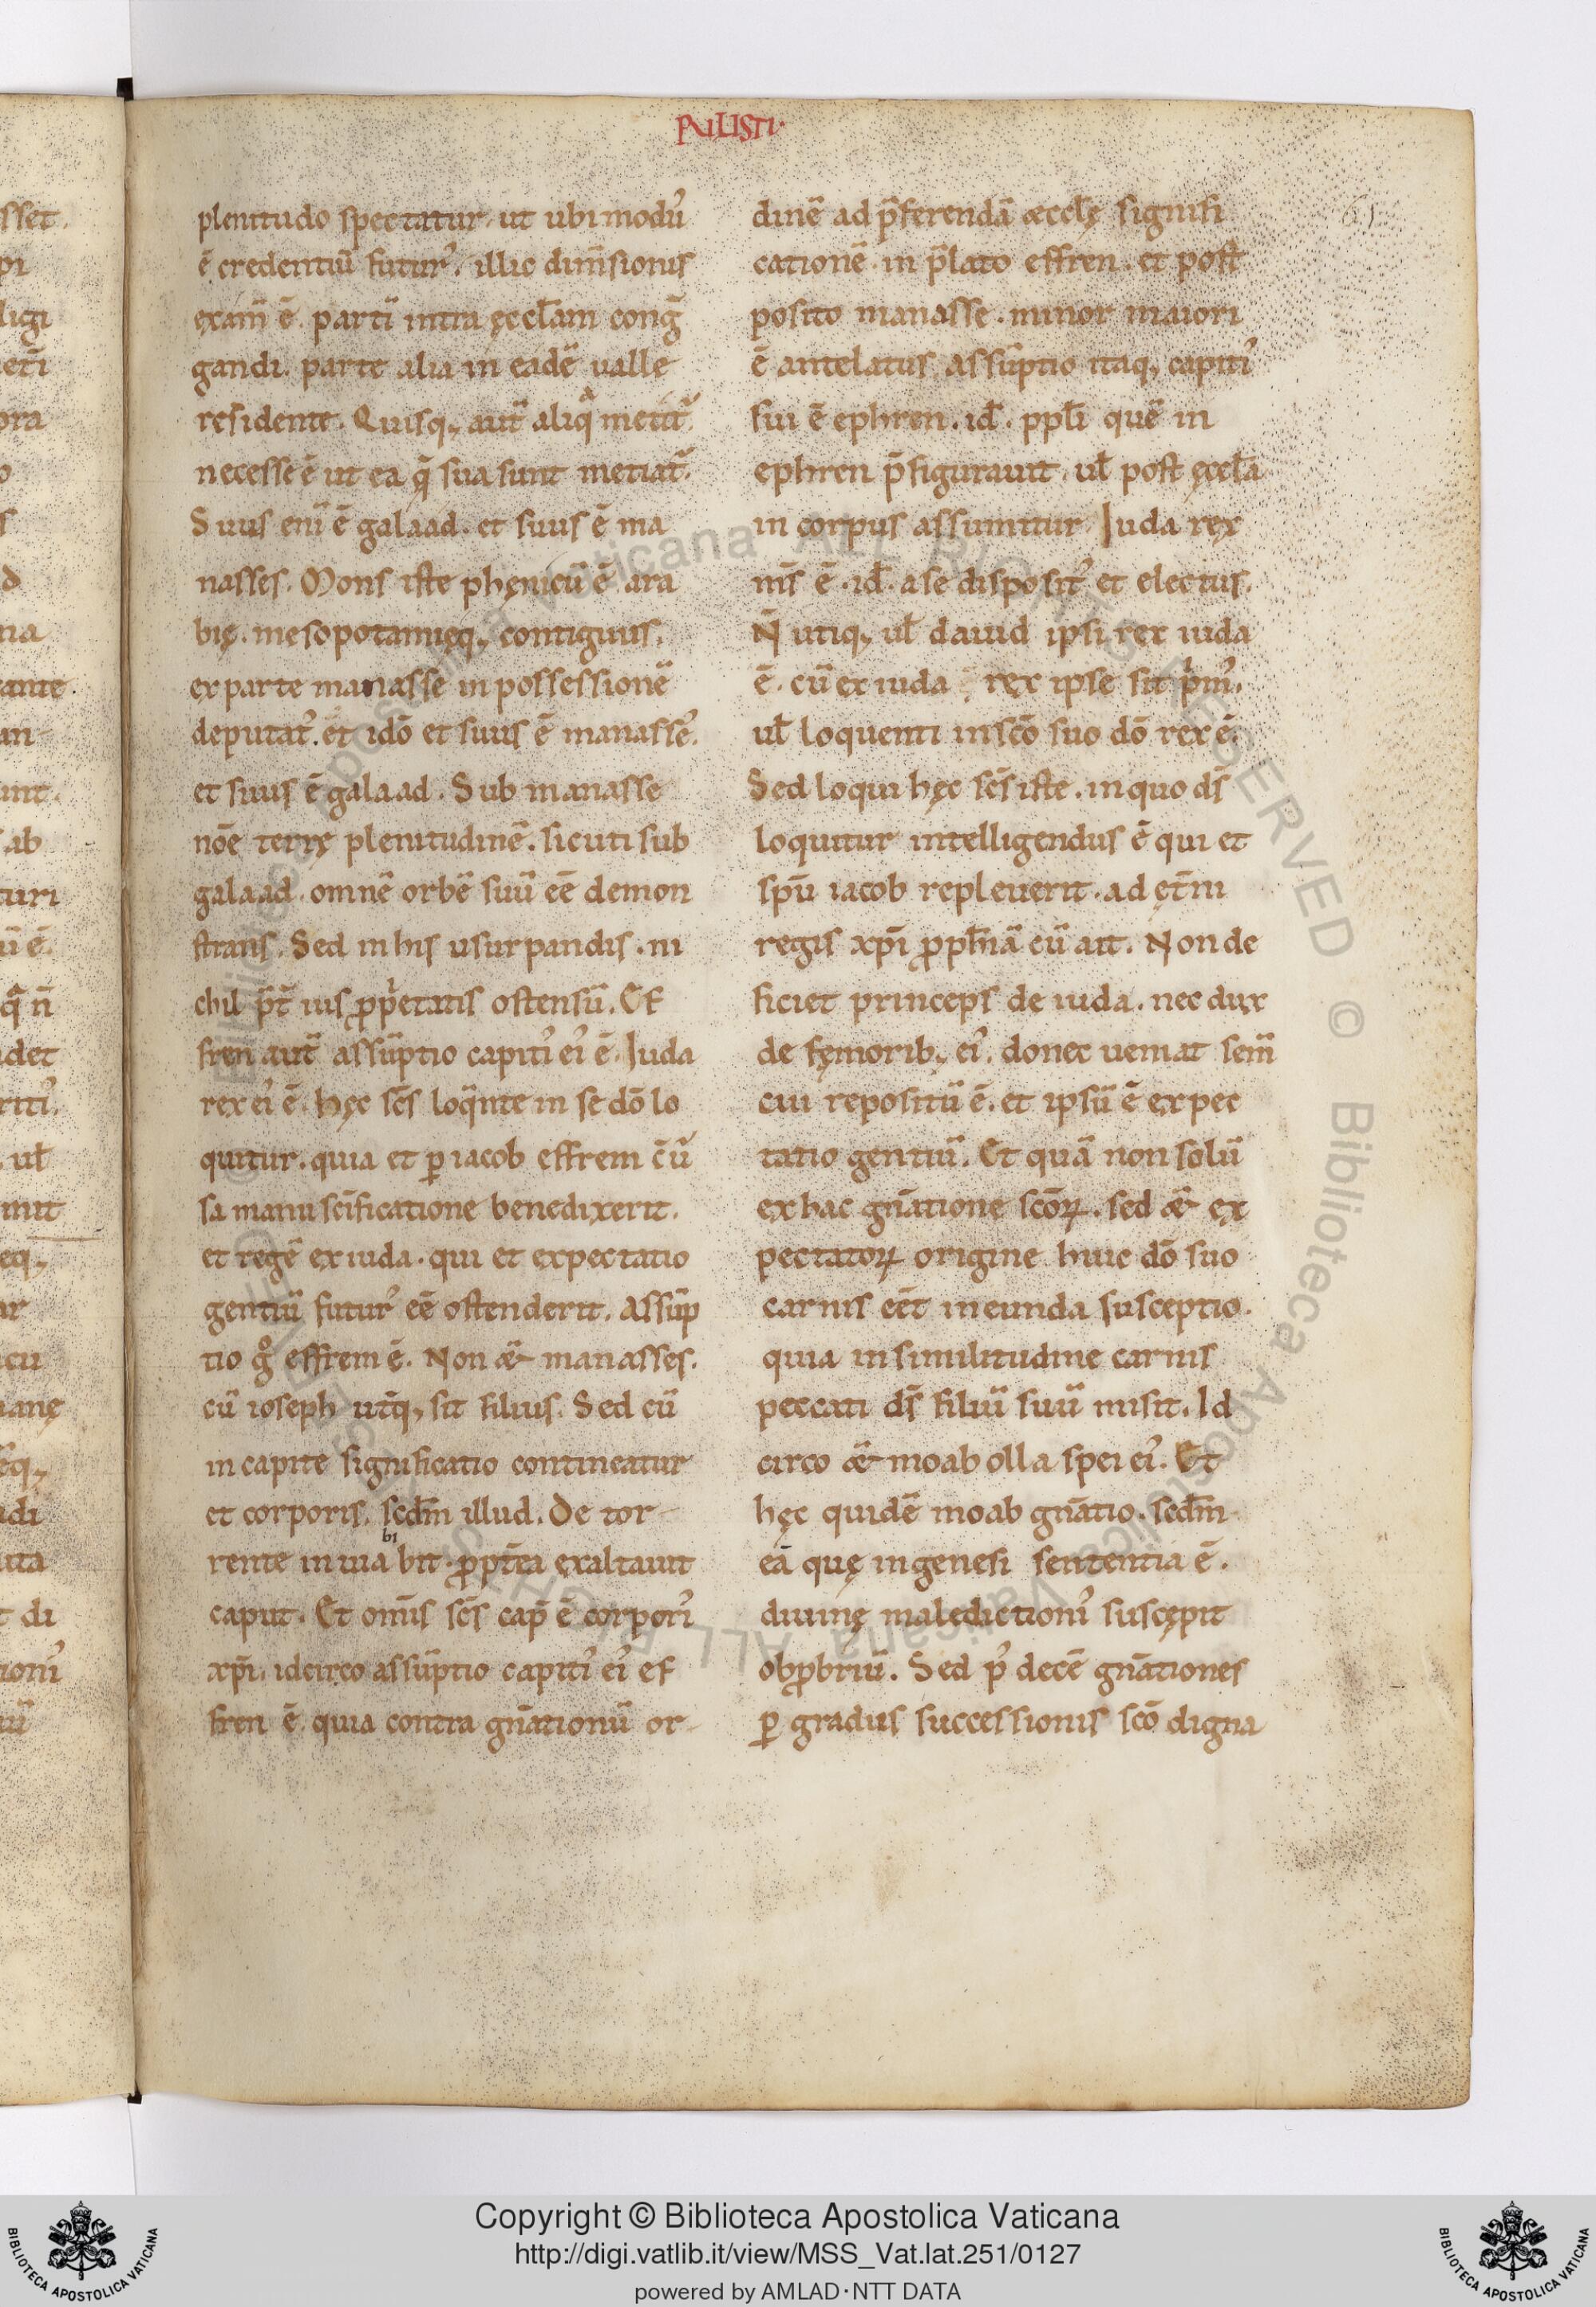 plenitudo spectatur. ut ubi modu᷒
ē credentiū futur᷒. illic dim̄sionis
exam̄ ē partī intra ęccl̄am cong̅
gandi. parte alia in eadē ualle
residente. Quisq; aut̄ aliqͣ metit᷑.
necesse ē ut ea q̄ sua sunt metiat᷑.
Suus eni̅ ē galaad. et suus ē ma
nasses. Mons iste phęnicū ē ara
bię. mesopotamięq; contiguus.
ex parte manasse in possessionē
deputat᷒. et idō et suus ē manasse᷒.
et suus ē galaad. Sub manasse
nōe terrę plenitudinē. sicuti sub
galaad. omnē orbē suū eē demon
strans. Sed in his usurpandis. ni
chil p̄t̄ ius ꝓpͥetatis ostensū. Ef
fren aut̄ assūptio capiti᷒ ei᷒ ē. Iuda
rex ei᷒ ē. hęc sc̄s loq̄nte in se dō lo
quitur. quia et ꝑ iacob effrem c̄ū
sa manu sc̄ificatione benedixerit.
et regē ex iuda. qui et expectatio
gentiū futur᷒ eē ostenderit. Assūp
tio gͦ effrem ē. Non & manasses.
cū ioseph ut̄q; sit filius. Sed cū
in capite significatio contineatur
et corporis. scd̄m illud. De tor-
rente in uia bi bit. ꝓpt̄ea exaltauit
caput. Et om̄is sc̄s cap̄ ē corpori᷒
xp̄i. idcirco assūptio capiti᷒ ei᷒ ef
fren ē. quia contra gn̄ationū or-
dinē ad p̄ferendā æccl̄ę signifi
cationē. in p̄lato effren. et post
posito manasse. minor maiori
ē antelatus. Assūptio itaq; capiti᷒
sui ē ephren. id̄. ppl̄i quē in
ephren p̄figurauit. ul̄ post ęccl̄a
in corpus assumitur. Iuda rex
m̄s ē. id̄. a se disposit᷒ et electus.
N̄ utiq; ul̄ dauid ipsi rex iuda
ē. cū ex iuda rex ipse sit pͥm᷒.
ul̄ loquenti in sc̄o suo dō rex ē.
Sed loqui hęc sc̄s iste. in quo ds̄
loquitur intelligendus ē qui et
sp̄u iacob repleuerit. ad ęt̄ni
regis xp̄i ꝓph̄iā cū ait. Non de
ficiet princeps de iuda. nec dux
de fęmorib; ei᷒. donec ueniat sem̄
cui repositū ē. et ipsū ē expec
tatio gentiū. Et quā non solū
ex hac gn̄atione sc̄oꝝ. sed & ex
pectatoꝝ origine huic dō suo
carnis eēt ineunda susceptio.
quia in similitudine carnis
peccati ds̄ filiū suū misit. Id
circo & moab olla spei ei᷒. Et
hęc quidē moab gn̄atio. scd̄m
eā quę in genesi sententia ē.
diuinę maledictioni᷒ suscępit
obꝓbriū. Sed p᷒ decē gn̄ationes
ꝑ gradus successionis sc̄o digna
Copyright © Biblioteca Apostolica Vaticana
http://digi.vatlib.it/view/MSS_Vat.lat.251/0127
powered by AMLAD·NTT DATA